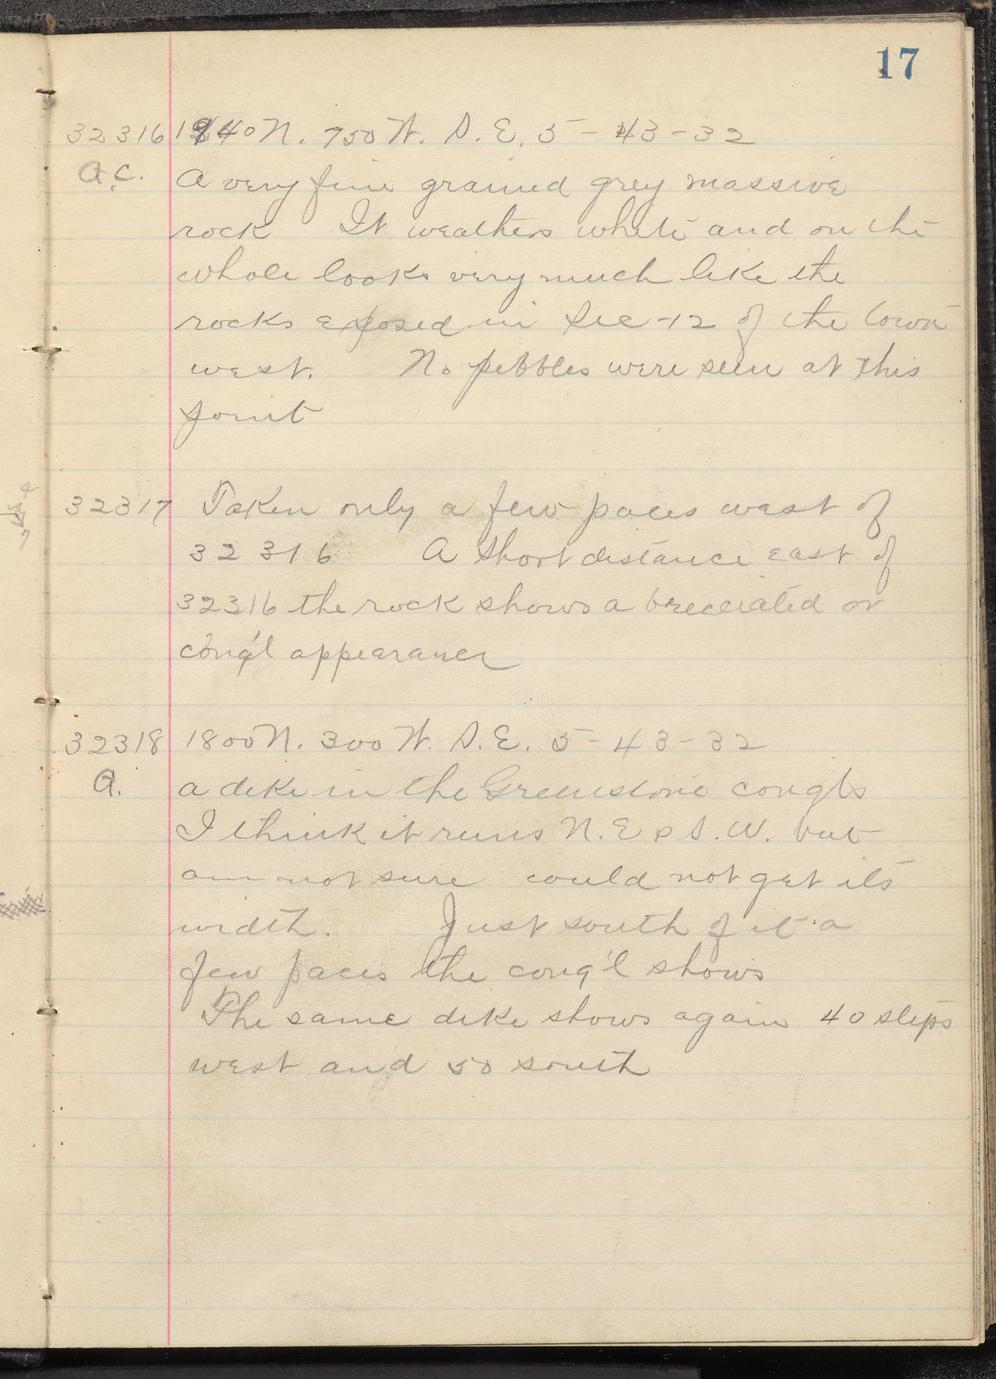 17
32316 1940 N. 750 W. S. E, 5-43-32
A.C. A very fine grained grey massive
rock It weathers white and on the
whole looks very much like the
rocks exposed in Sec-12 of the town
west. No pebbles were seen at this
point
32317 Taken only a few paces west of
32316 A short distance east of
32316 the rock shows a brecciated or
cong'l appearance
32318 1800 N. 300 W. S. E. 5-43-32
A. a dike in the Greenstone congls
I think it runs N.E & S.W. but
am not sure could not get its
width. Just south of it a
few paces the cong'l shows
The same dike shows again 40 steps
west and 50 south